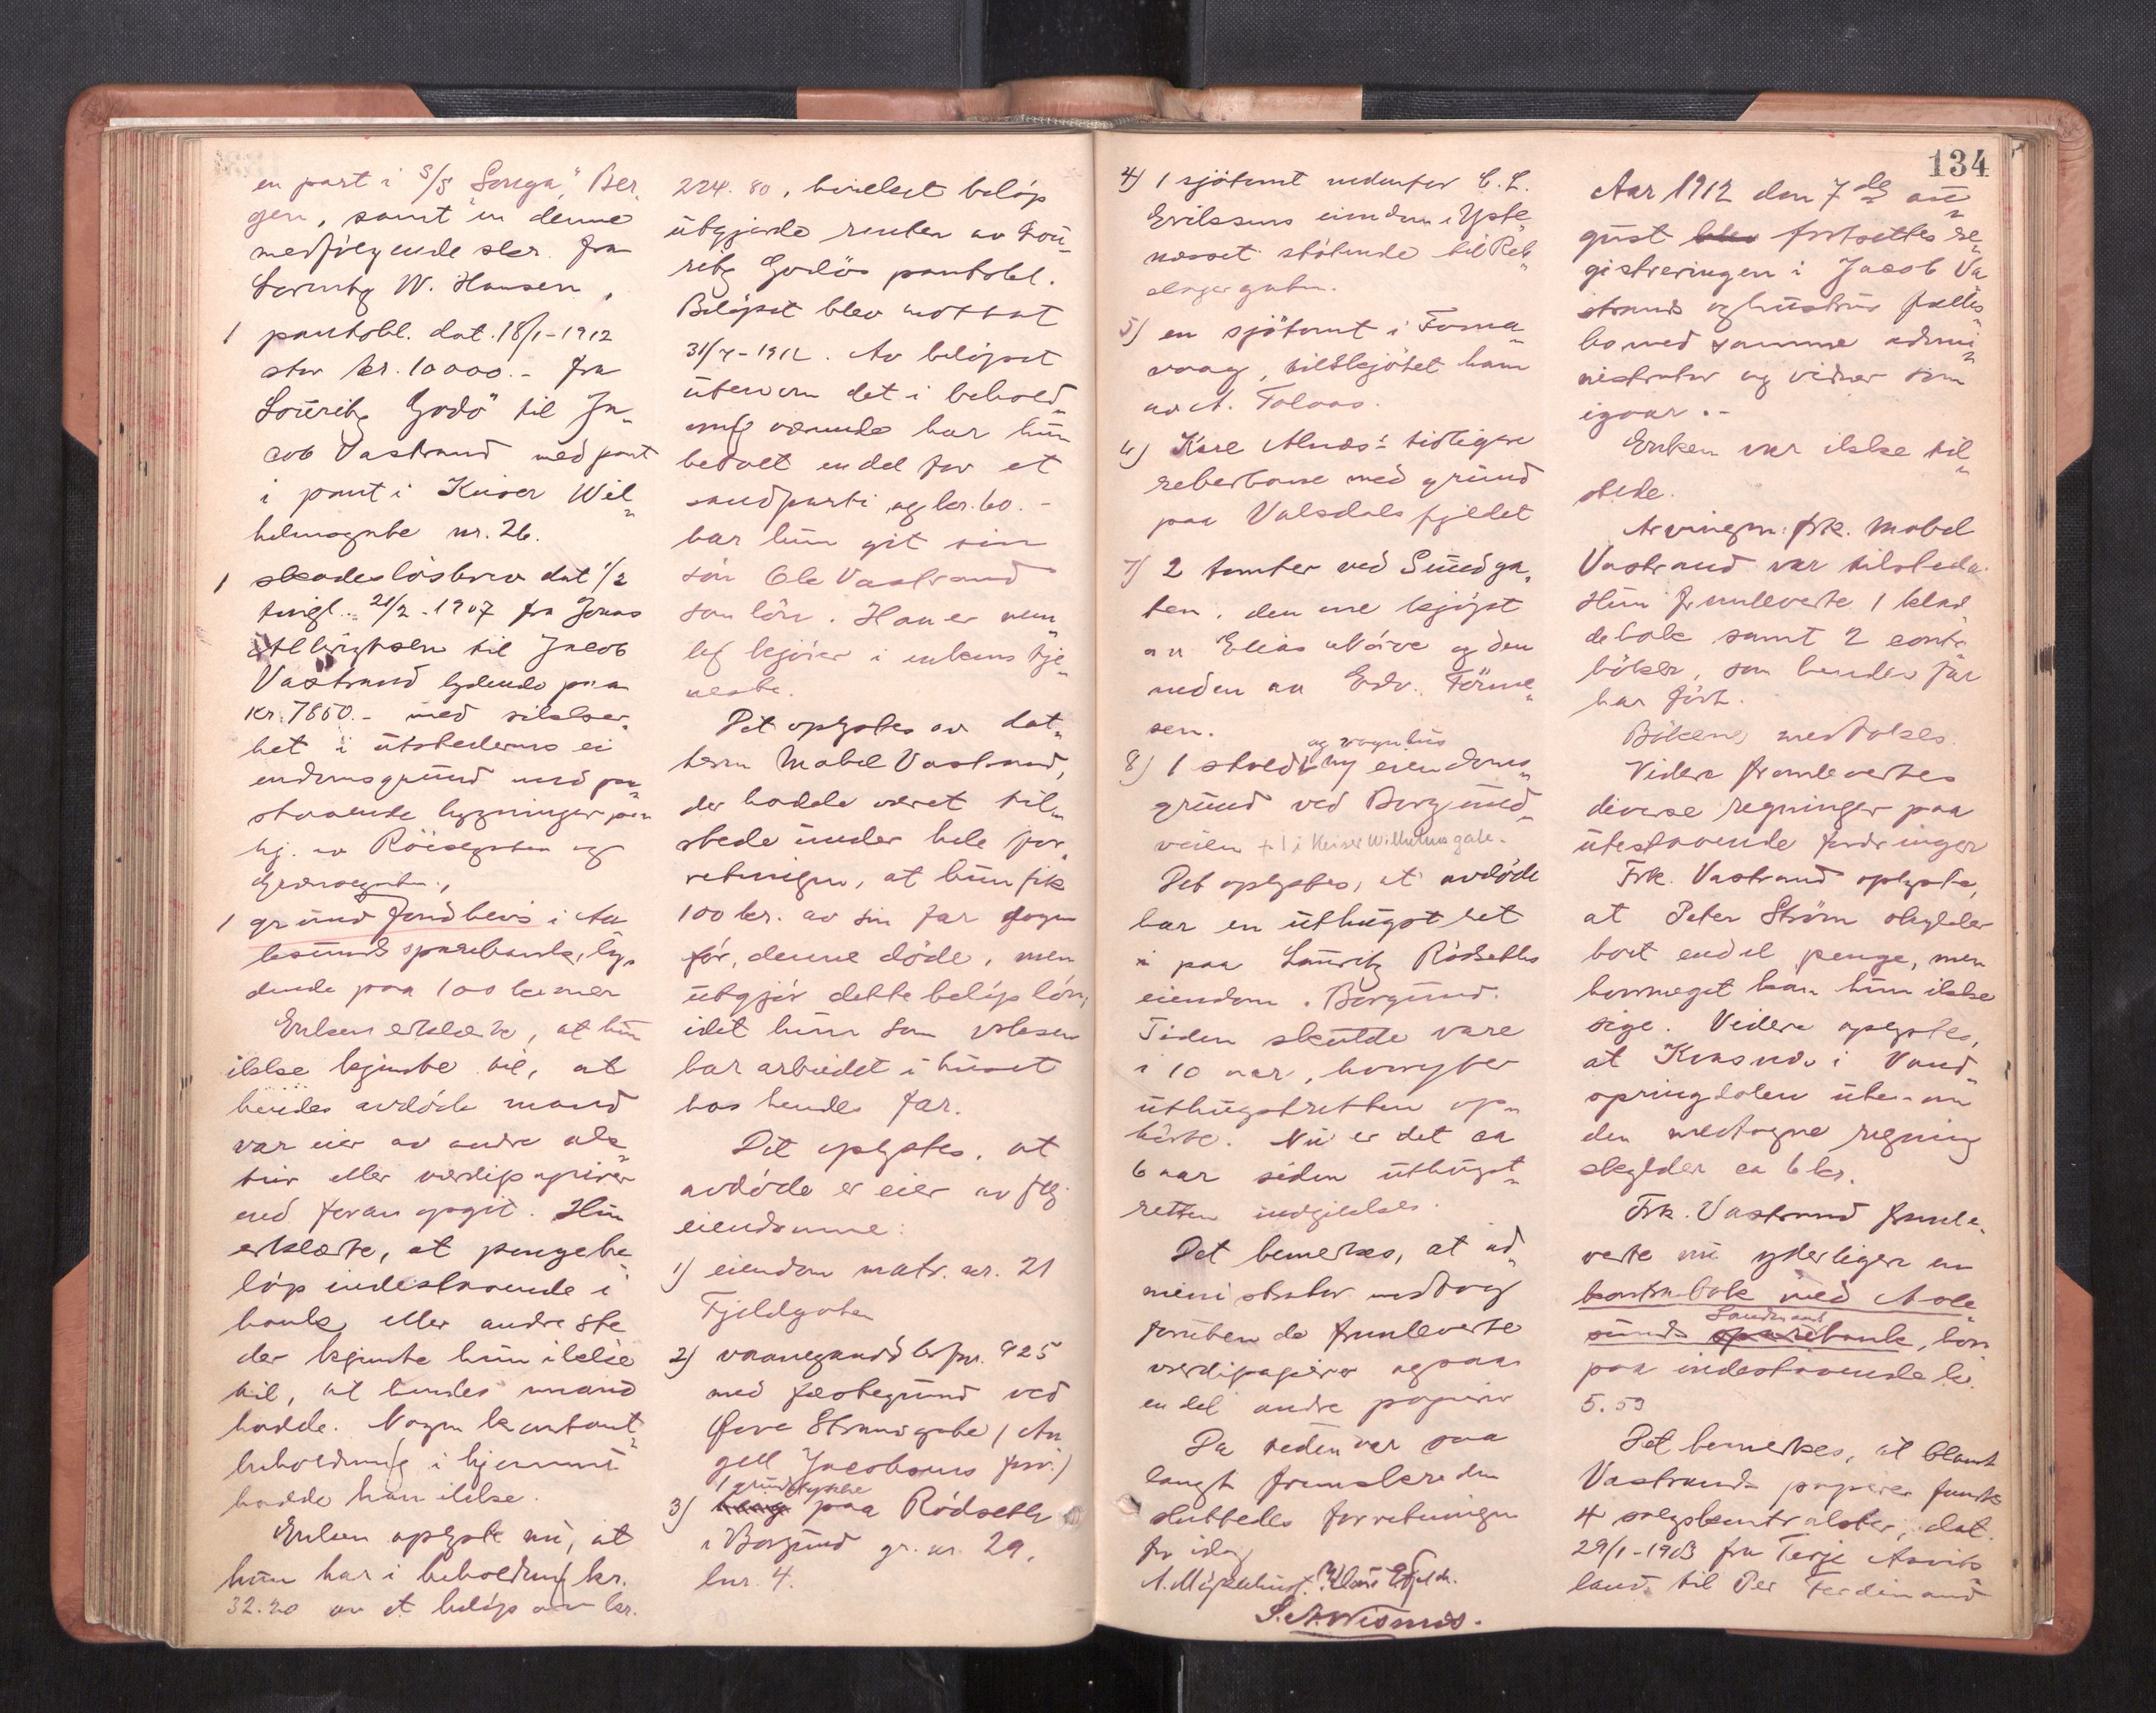 en part i S/S "Songa", Ber
gen, samt en denne
medfölgende skr. fra
W. Hansen,
1 pantobl. dat. 18/1-1912
stor kr. 10000.- fra
Louritz Godö til Ja„
cob Vastrand med pant
i pant i Keiser Wil„
helmsgate nr. 26.
1 skadeslösbrev dat 1/2
tingl. 21/2-1907 fra Jonas
til Jacob
Vastrand lydende paa
kr. 7850.- med sikker„
het i utstederens ei
endomsgrund med paa„
staaende bygninger paa
hj. av Röisegaten og
1 grundfondbevis i Aa
lesunds sparebank, ly„
dende paa 100 kroner
Enken erklærte, at hun
ikke kjendte til, at
hendes avdöde mand
var eier av andre ak„
tier eller værdipapirer
end foran opgit. Hun
erklærte, at pengebe„
löp indestaaende i
bank eller andre ste
der kjendte hun ikke
til, at hendes mand
hadde. Nogen kontant„
beholdning i hjemmet
hadde han ikke.
Enken oplyste nu, at
hun har i beholdning kr.
32.20 av et belöp av kr.
224.80, hvilket belöp
utgjorde renter av Lou„
ritz Godös pantobl.
Belöpet blev mottat
31/7-1912. Av belöpet
utenom det i behold„
ning værende har hun
betalt en del for et
sandparti, og kr. 60.-
har hun git sin
sön Ole Vastrand
som lön. Han er nem„
lig kjörer i enkens tje„
neste.
Det oplystes av dat„
teren Mabel Vastrand,
der hadde været til„
stede under hele for„
retningen, at hun fik
100 kr. av sin far dagen
för, denne döde, men
utgjör dette belöp lön,
idet hun som voksen
har arbeidet i huset
hos hendes far.
Det oplystes, at
avdöde er eier av flg.
eiendomme:
1) eiendom matr. nr. 21
Fjeldgaten
2) vaaningshus br.pr. 925
med fæstegrund ved
Övre Strandgate (An
gell Jacobsens forr.)
1 grundstykke
3) paa Rödseth
i Borgund gr. nr. 29,
bnr. 4.
134
4) 1 sjötomt nedenfor C. L.
Erikssens eiendom i Yste
nesset stötende til Reb„
slagergaten.
5) en sjötomt i Fosna„
vaag, tilskjötet ham
av A. Tolaas.
6) Kåre Alnæs' tidligere
reberbane med grund
paa Valsdals fjeldet
7) 2 tomter ved Sundga„
ten, den ene kjöpt
av Elias Nörve og den
anden av Edv. Tönne„
sen.
og vognhus
8) 1 stald paa ny eiendoms„
grund ved Borgund„
veien + 1 i Keiser Wilhelms gate.
Det oplystes, at avdöde
har en uthugstret
i paa Lauritz Rödseths
eiendom. Borgund.
Tiden skulde vare
i 10 aar, hvorefter
uthugstretten op„
hörte. Nu er det ca
6 aar siden uthugst„
retten indgikkes.
Det bemerkes, at ad„
ministrator mottog
foruten de fremleverte
værdipapirer ogsaa
en del andre papirer
Da tiden var saa
langt fremskreden
sluttedes forretningen
for idag
Aar 1912 den 7de au„
gust blev fortsattes re„
gistreringen i Jacob Va
strands og hustrus fælles„
bo med samme admi„
nistrator og vidner som
igaar.-
Enken var ikke til„
stede.
Arvingen: frk. Mabel
Vastrand var tilstede.
Hun fremleverte 1 klad„
debok samt 2 conto
böker, som hendes far
har fört.
Bökene medtokes.
Videre fremlevertes
diverse regninger paa
utestaaende fordringer
Frk. Vastrand oplyste,
at Peter Ström skylder
bort endel penge, men
hvormeget kan hun ikke
sige. Videre oplystes,
at Knasnæs i Vand„
springdalen uten om
den medtagne regning
skylder ca 6 kr.
Frk. Vastrand fremle„
verte nu yderligere en
kontrabok med Aale„
Landmands
sunds sparebank, hvor
paa indestaaende kr.
5.59
Det bemerkes, at blant
Vastrands papirer fandtes
4 salgskontrakter, dat.
29/1-1903 fra Terje Asvits
land til Per Ferdinand